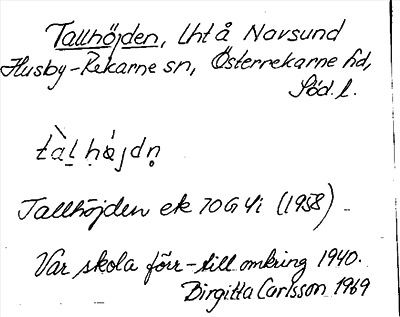 Tallhöjden, Lht å Navsund
Husby-Rekarne sn, Österrekarne hd,
Söd. l.
tàl̠ hǿjdn̥
Tallhöjden ek 70G4i (1958)
Var skola förr - till omkring 1940.
Birgitta Carlsson 1969